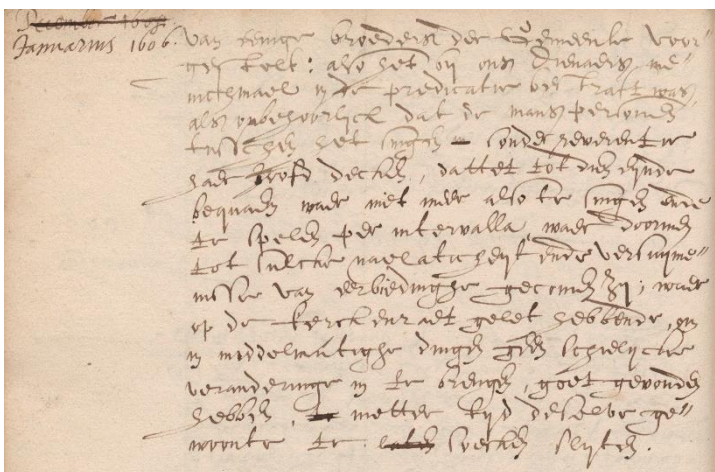 Januarius 1606. van eenige broeders der Gemeente voor-
gestelt: alsoo het bij ons Dienaers me-
nichmael in de predicatie bestraft was,
als onbehoorlick dat de mans personen
tusschen het singen sonder reverentie
haer hooft decken, dattet tot dien eynde
bequaem ware niet meer also te singen ende
te spelen per intervalla, waer doormen
tot sulcke naelaticheyt ende versuyme-
nisse van eerbiedinghe gecomen zij; waer
op de kerckenraet gelet hebbende, om
in middelmatighe dingen geen schielycke
veranderinge in te brengen, goet gevonden
hebben, metter tijd deselve ge-
woonte te soecken slijten.